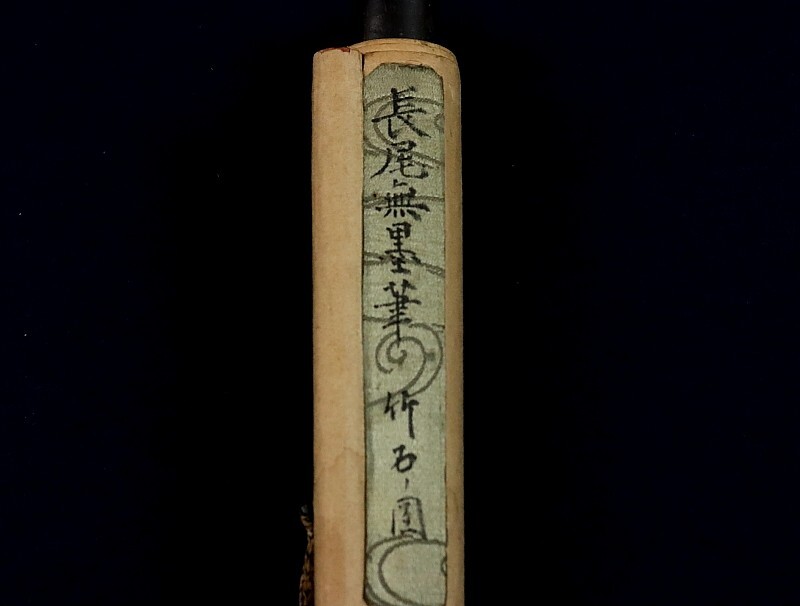 長尾無墨筆 竹石ノ図